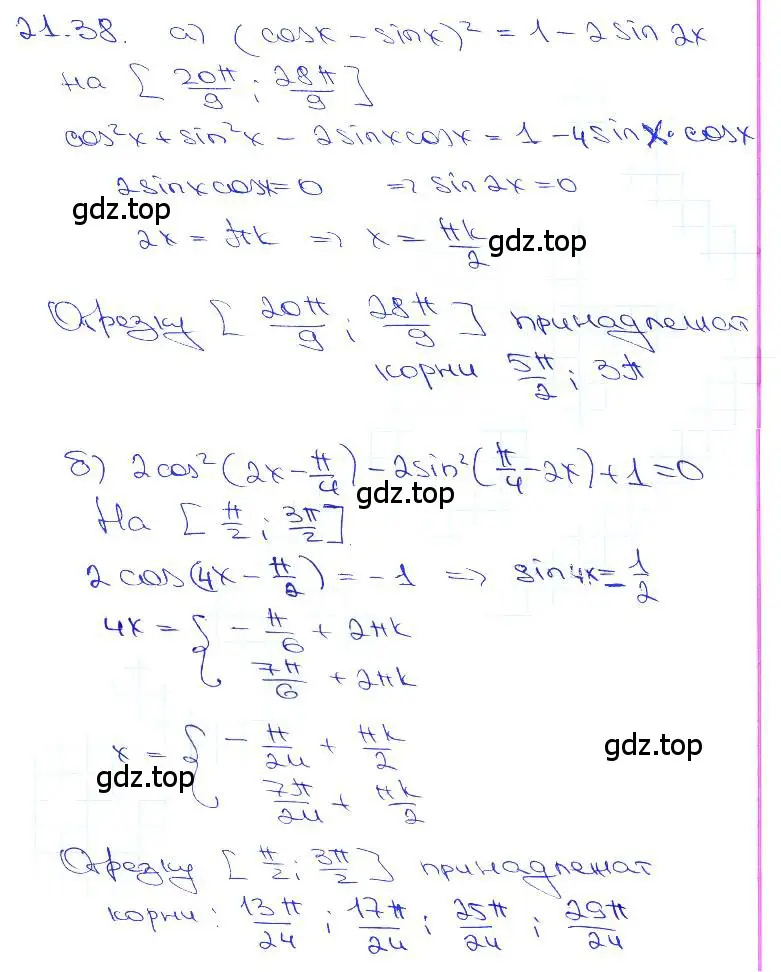 21.38. а) (cosx - sinx)² = 1 - 2 sin 2x
на [20π/9; 28π/9]
cos²x + sin²x - 2sinxcosx = 1 - 4sinx·cosx
2sinxcosx=0 => sin2x=0
gdz.top
2x = πk => x = πk/2
gdz.top
Отрезку [20π/9; 28π/9] принадлежат
корни 5π/2; 3π
б) 2cos²(2x - π/4) - 2sin²(π/4 - 2x) + 1 = 0
gdz.top
На [π/2; 3π/2]
2cos(4x - π/2) = -1 => sin4x = 1/2
4x = { -π/6 + 2πk
7π/6 + 2πk
x = { -π/24 + πk/2
gdz.top
gdz.top
7π/24 + πk/2
Отрезку [π/2; 3π/2] принадлежат
корни: 13π/24; 17π/24; 25π/24; 29π/24